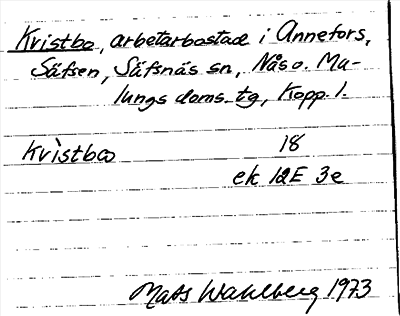 Kristbo, arbetarbostad i Annefors,
Säfsen, Säfsnäs sn, Nås o. Ma-
lungs doms. tg, Kopp. l.
Krìstbo 18
ek 12E 3e
Mats Wahlberg 1973